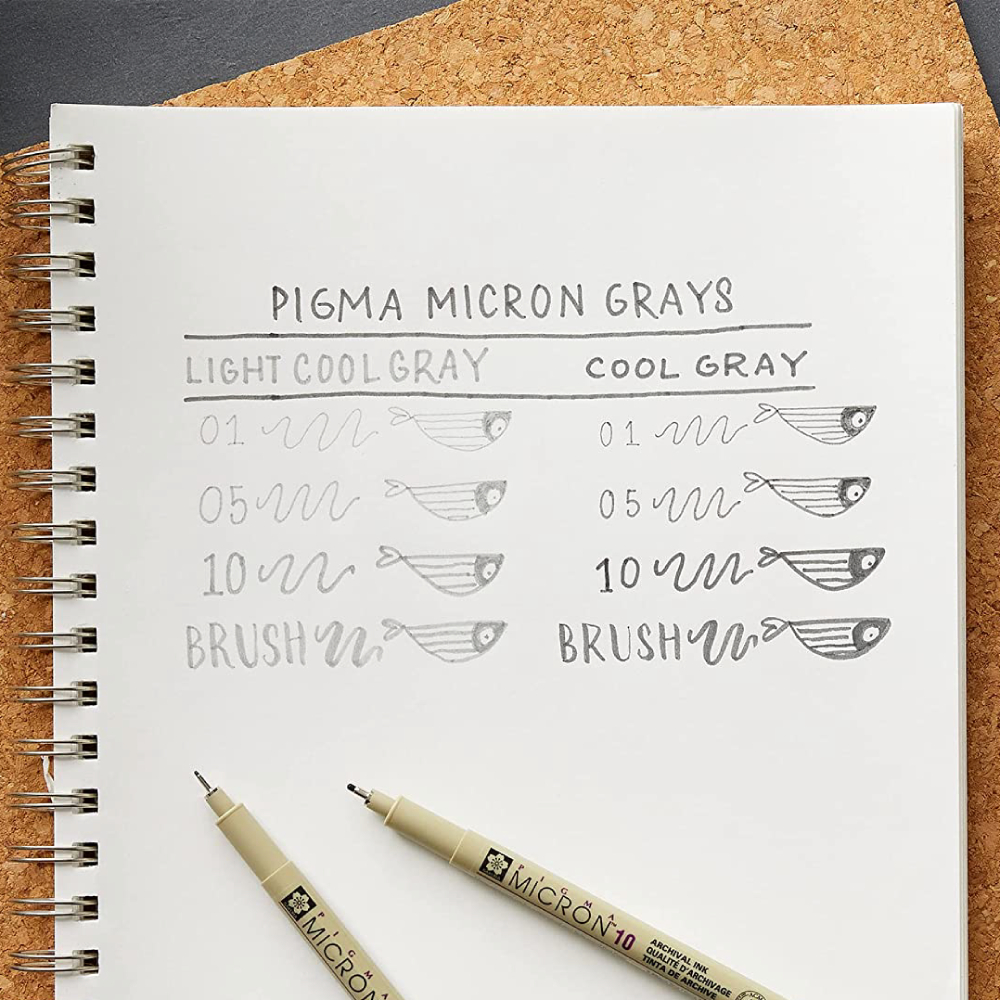 PIGMA MICRON GRAYS
LIGHT COOL GRAY COOL GRAY
01 01
05 05
10 10
BRUSH BRUSH
PIGMA
MICRON
PIGMA
MICRON™ 10
ARCHIVAL INK
QUALITÉ D'ARCHIVAGE
TINTA DE ARCHIVE